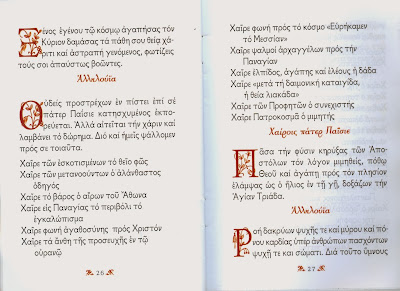 Ξένος ἐγένου τῷ κόσμῳ ἀγαπήσας τὸν
Κύριον δαμάσας τὰ πάθη σου θείᾳ χά-
ριτι καὶ ἀστραπὴ γενόμενος, φωτίζεις
τοὺς σοι ἀπαύστως βοῶντες.
Ἀλληλούϊα
Οὐδεὶς προστρέχων ἐν πίστει ἐπὶ σὲ
πάτερ Παΐσιε κατησχυμένος ἐκπο-
ρεύεται. Ἀλλὰ αἰτεῖται τὴν χάριν καὶ
λαμβάνει τὸ δώρημα. Διὸ καὶ ἡμεῖς ψάλλομεν
πρὸς σε τοιαῦτα.
Χαῖρε τῶν ἐσκοτισμένων τὸ θεῖο φῶς
Χαῖρε τῶν μετανοούντων ὁ ἀλάνθαστος
ὁδηγός
Χαῖρε τὸ βάρος ὁ αἴρων τοῦ Ἄθωνα
Χαῖρε εἰς Παναγίας τὸ περιβόλι τὸ
ἐγκαλώπισμα
Χαῖρε φωνὴ ἀγαθοσύνης πρὸς Χριστόν
Χαῖρε τὰ ἄνθη τῆς προσευχῆς ἐν τῷ
οὐρανῷ
26
Χαῖρε φωνὴ πρὸς τὸ κόσμο «Εὑρήκαμεν
τὸ Μεσσίαν»
Χαῖρε ψαλμοὶ ἀρχαγγέλων πρὸς τὴν
Παναγίαν
Χαῖρε ἐλπίδος, ἀγάπης καὶ ἐλέους ἡ δάδα
Χαῖρε «μετὰ τὴ δαιμονικὴ καταιγίδα,
ἡ θεία λιακάδα»
Χαῖρε τῶν Προφητῶν ὁ συνεχιστής
Χαῖρε Πατροκοσμᾶ ὁ μιμητής
Χαίροις πάτερ Παΐσιε
Πᾶσα τὴν φύσιν κηρύξας τῶν Ἀπο-
στόλων τὸν λόγον μιμηθείς, πόθῳ
Θεοῦ καὶ ἀγάπῃ πρὸς τὸν πλησίον
ἐλάμψας ὡς ὁ ἥλιος ἐν τῇ γῇ, δοξάζων τὴν
Ἁγίαν Τριάδα.
Ἀλληλούϊα
Ροὴ δακρύων ψυχῆς τε καὶ μύρου καὶ πό-
νου καρδίας ὑπὲρ ἀνθρώπων πασχόντων
ψυχῇ τε καὶ σώματι. Διὰ τοῦτο ὕμνους
27